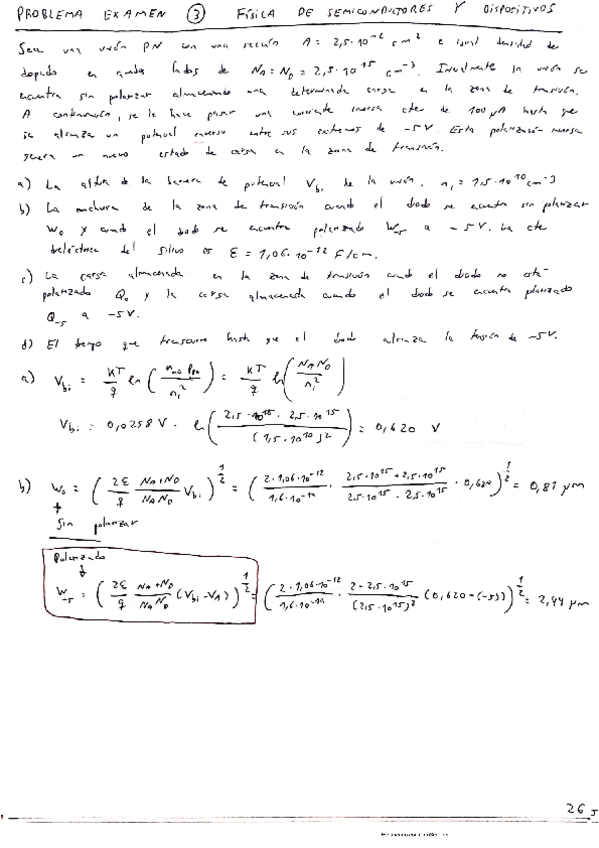 PROBLEMA EXAMEN ③ FÍSICA DE SEMICONDUCTORES Y DISPOSITIVOS
Sea una unión PN con una sección A = 2,5·10⁻² cm² e igual densidad de
dopado en ambos lados de NA = ND = 2,5·10¹⁵ cm⁻³. Inicialmente la unión se
encuentra sin polarizar almacenando una determinada carga en la zona de transición.
A continuación, se le hace pasar una corriente inversa cte de 100 μA hasta que
se alcanza un potencial inverso entre sus extremos de -5V. Esta polarización inversa
genera un nuevo estado de carga en la zona de transición.
a) La altura de la barrera de potencial Vbi de la unión. ni = 1,5·10¹⁰ cm-3
b) La anchura de la zona de transición cuando el diodo se encuentra sin polarizar
W0 y cuando el diodo se encuentra polarizado W-5 a -5V. La cte
dieléctrica del silicio es ε = 1,06·10⁻¹² F/cm.
c) La carga almacenada en la zona de transición cuando el diodo no está
polarizado Q0 y la carga almacenada cuando el diodo se encuentra polarizado
Q-5 a -5V.
d) El tiempo que transcurre hasta que el diodo alcanza la tensión de -5V.
a) Vbi = KT/q ln(nno ppo / ni²) = KT/q ln(NA ND / ni²)
Vbi = 0,0258V · ln(2,5·10¹⁵ · 2,5·10¹⁵ / (1,5·10¹⁰)²) = 0,620 V
b) W0 = (2ε/q NA+ND/NAND Vbi)^1/2 = (2·1,06·10⁻¹²/1,6·10⁻¹⁹ · 2,5·10¹⁵+2,5·10¹⁵/2,5·10¹⁵·2,5·10¹⁵ · 0,620)^1/2 = 0,81 μm
Sin polarizar
Polarizado
W-5 = (2ε/q NA+ND/NAND (Vbi-VA))^1/2 = (2·1,06·10⁻¹²/1,6·10⁻¹⁹ · 2·2,5·10¹⁵/(2,5·10¹⁵)² (0,620-(-5)))^1/2 = 2,44 μm
26